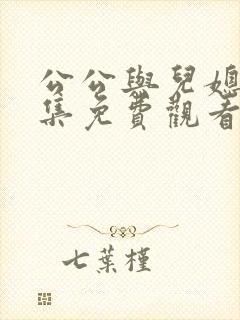 公公與兒媳
集免費觀看
七葉槿